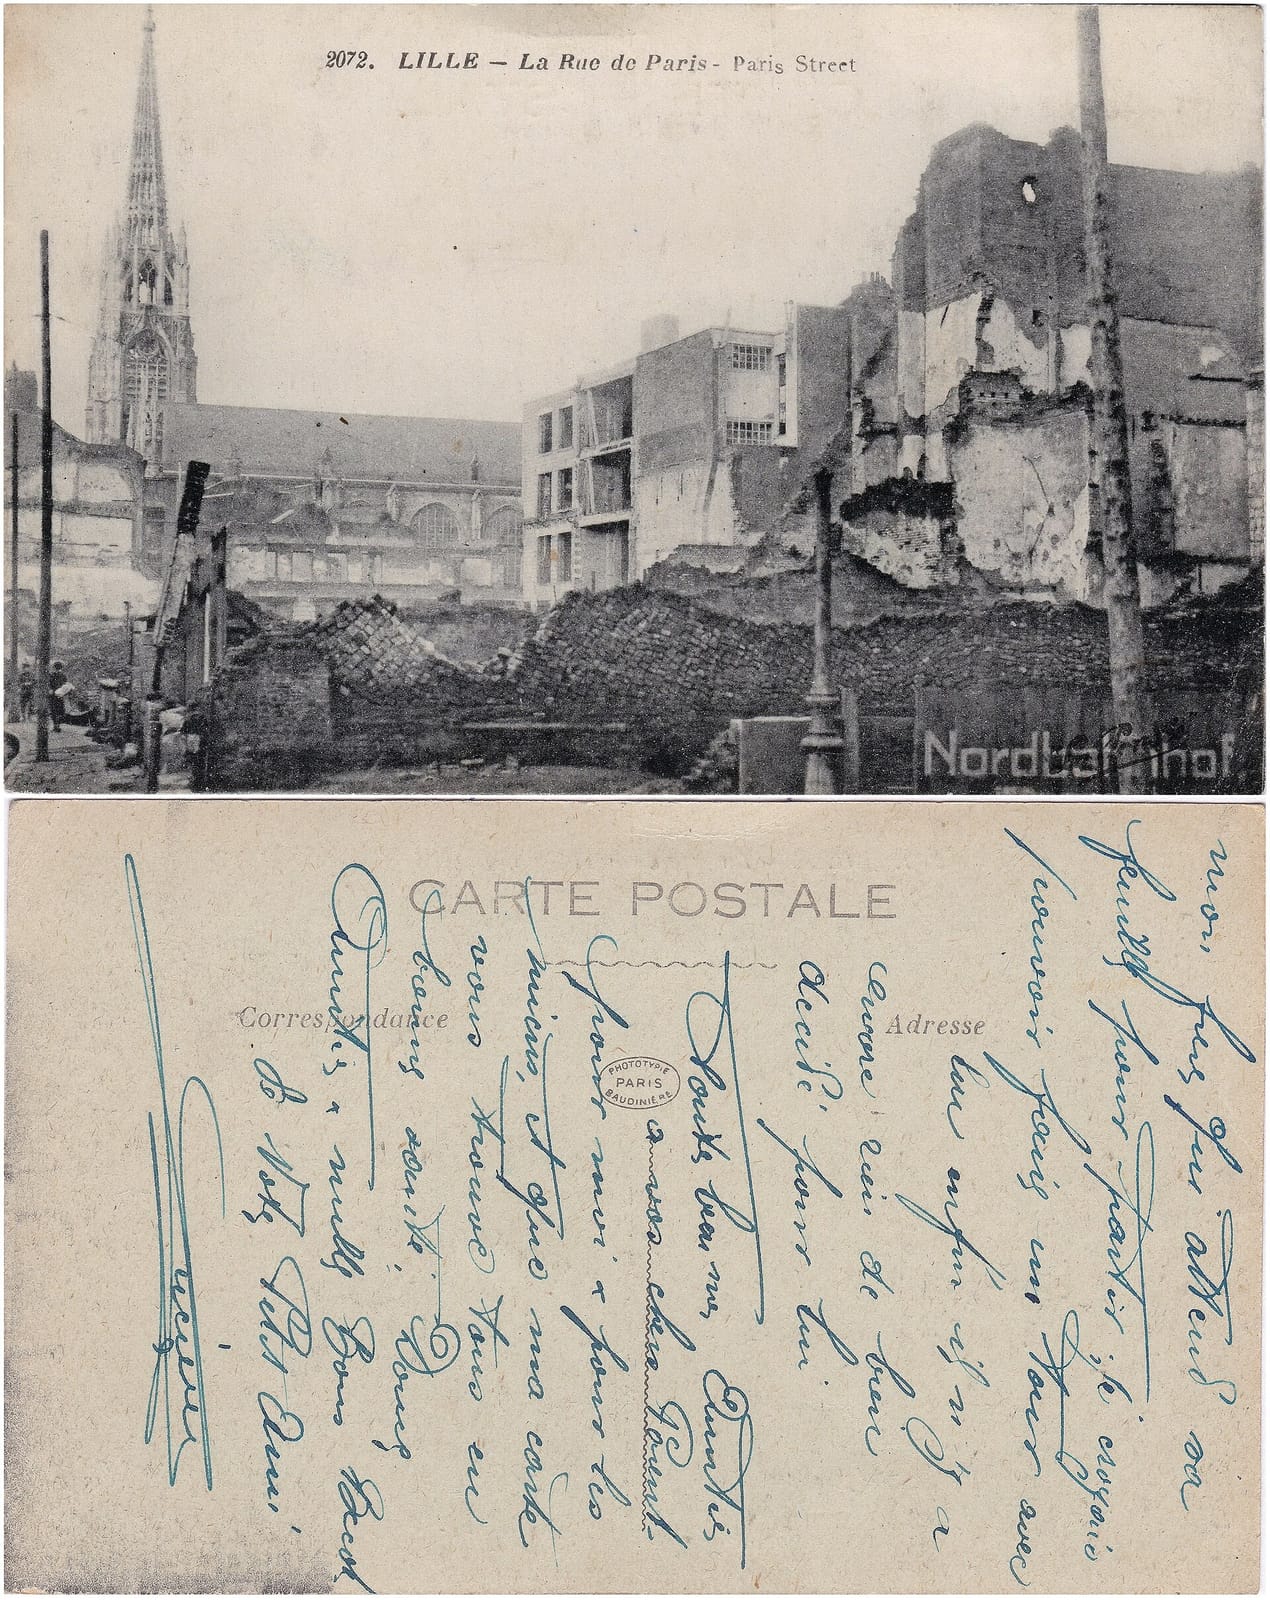 2072. LILLE — La Rue de Paris - Paris Street
Nordbahnhof
CARTE POSTALE
Correspondance
Adresse
PHOTOTYPIE
PARIS
BAUDINIÈRE
mon frère qui attend sa
feuille pour partir, je croyais
pouvoir faire un tour avec
lui enfin il n'y a
encore rien de bien
décidé pour lui
Toutes Amitiés
à vos chers Parents
pour moi & pour les
miens, et que ma carte
vous trouve tous en
bonne santé.
Amitiés & mille Bons
de Votre Petit Ami
Lucien